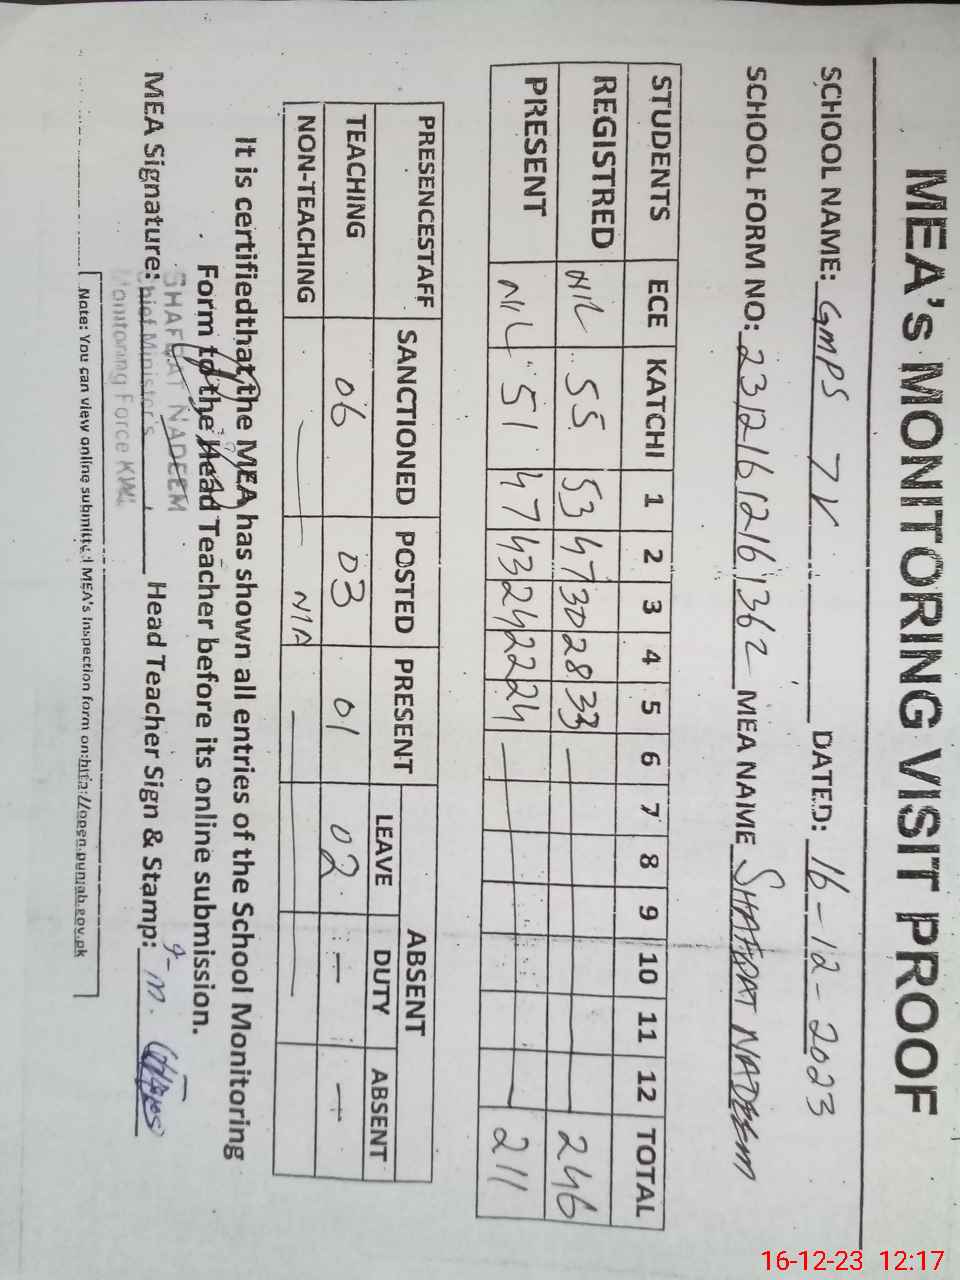 MEA's MONITORING VISIT PROOF
SCHOOL NAME: GMPS 7V DATED: 16-12-2023
SCHOOL FORM NO: 23121612161362 MEA NAME SHAFQAT NADEEM
STUDENTS ECE KATCHI 1 2 3 4 5 6 7 8 9 10 11 12 TOTAL
REGISTRED NIL 55 53 47 30 28 33 246
PRESENT NIL 51 47 43 24 22 24 211
PRESENCESTAFF SANCTIONED POSTED PRESENT ABSENT
LEAVE DUTY ABSENT
TEACHING 06 03 01 02 - -
NON-TEACHING N/A
It is certifiedthat,the MEA has shown all entries of the School Monitoring
Form to the Head Teacher before its online submission.
SHAFQAT NADEEM
MEA Signature: Chief Minister's Head Teacher Sign & Stamp:
Monitoring Force KWL
Note: You can view online submitted MEA's Inspection form on:http://open.punjab.gov.pk
16-12-23 12:17